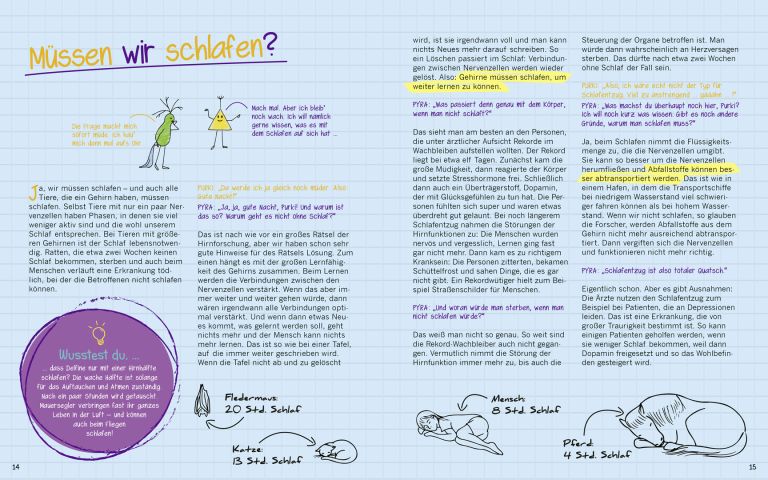 Müssen wir schlafen?
Die Frage macht mich
sofort müde. Ich hau'
mich dann mal aufs Ohr
Mach mal. Aber ich bleib'
noch wach. Ich will nämlich
gerne wissen, was es mit
dem Schlafen auf sich hat ...
Ja, wir müssen schlafen – und auch alle
Tiere, die ein Gehirn haben, müssen
schlafen. Selbst Tiere mit nur ein paar Ner-
venzellen haben Phasen, in denen sie viel
weniger aktiv sind und die wohl unserem
Schlaf entsprechen. Bei Tieren mit größe-
ren Gehirnen ist der Schlaf lebensnotwen-
dig. Ratten, die etwa zwei Wochen keinen
Schlaf bekommen, sterben und auch beim
Menschen verläuft eine Erkrankung töd-
lich, bei der die Betroffenen nicht schlafen
können.
Wusstest du, ...
... dass Delfine nur mit einer Hirnhälfte
schlafen? Die wache Hälfte ist solange
für das Auftauchen und Atmen zuständig.
Nach ein paar Stunden wird getauscht.
Mauersegler verbringen fast ihr ganzes
Leben in der Luft – und können
auch beim Fliegen
schlafen!
PURKI: „Da werde ich ja gleich noch müder. Also:
Gute Nacht!"
PYRA: „Ja, ja, gute Nacht, Purki! Und warum ist
das so? Warum geht es nicht ohne Schlaf?"
Das ist nach wie vor ein großes Rätsel der
Hirnforschung, aber wir haben schon sehr
gute Hinweise für des Rätsels Lösung. Zum
einen hängt es mit der großen Lernfähig-
keit des Gehirns zusammen. Beim Lernen
werden die Verbindungen zwischen den
Nervenzellen verstärkt. Wenn das aber im-
mer weiter und weiter gehen würde, dann
wären irgendwann alle Verbindungen opti-
mal verstärkt. Und wenn dann etwas Neu-
es kommt, was gelernt werden soll, geht
nichts mehr und der Mensch kann nichts
mehr lernen. Das ist so wie bei einer Tafel,
auf die immer weiter geschrieben wird.
Wenn die Tafel nicht ab und zu gelöscht
Fledermaus:
20 Std. Schlaf
Katze:
13 Std. Schlaf
14
wird, ist sie irgendwann voll und man kann
nichts Neues mehr darauf schreiben. So
ein Löschen passiert im Schlaf: Verbindun-
gen zwischen Nervenzellen werden wieder
gelöst. Also: Gehirne müssen schlafen, um
weiter lernen zu können.
PYRA: „Was passiert denn genau mit dem Körper,
wenn man nicht schläft?"
Das sieht man am besten an den Personen,
die unter ärztlicher Aufsicht Rekorde im
Wachbleiben aufstellen wollten. Der Rekord
liegt bei etwa elf Tagen. Zunächst kam die
große Müdigkeit, dann reagierte der Körper
und setzte Stresshormone frei. Schließlich
dann auch ein Überträgerstoff, Dopamin,
der mit Glücksgefühlen zu tun hat. Die Per-
sonen fühlten sich super und waren etwas
überdreht gut gelaunt. Bei noch längerem
Schlafentzug nahmen die Störungen der
Hirnfunktionen zu: Die Menschen wurden
nervös und vergesslich, Lernen ging fast
gar nicht mehr. Dann kam es zu richtigem
Kranksein: Die Personen zitterten, bekamen
Schüttelfrost und sahen Dinge, die es gar
nicht gibt. Ein Rekordwütiger hielt zum Bei-
spiel Straßenschilder für Menschen.
PYRA: „Und woran würde man sterben, wenn man
nicht schlafen würde?"
Das weiß man nicht so genau. So weit sind
die Rekord-Wachbleiber auch nicht gegan-
gen. Vermutlich nimmt die Störung der
Hirnfunktion immer mehr zu, bis auch die
Mensch:
8 Std. Schlaf
Steuerung der Organe betroffen ist. Man
würde dann wahrscheinlich an Herzversagen
sterben. Das dürfte nach etwa zwei Wochen
ohne Schlaf der Fall sein.
PURKI: „Also, ich wäre echt nicht der Typ für
Schlafentzug. Viel zu anstrengend ... gääähn ...!"
PYRA: „Was machst du überhaupt noch hier, Purki?
Ich will noch kurz was wissen: Gibt es noch andere
Gründe, warum man schlafen muss?"
Ja, beim Schlafen nimmt die Flüssigkeits-
menge zu, die die Nervenzellen umgibt.
Sie kann so besser um die Nervenzellen
herumfließen und Abfallstoffe können bes-
ser abtransportiert werden. Das ist wie in
einem Hafen, in dem die Transportschiffe
bei niedrigem Wasserstand viel schwieri-
ger fahren können als bei hohem Wasser-
stand. Wenn wir nicht schlafen, so glauben
die Forscher, werden Abfallstoffe aus dem
Gehirn nicht mehr ausreichend abtranspor-
tiert. Dann vergiften sich die Nervenzellen
und funktionieren nicht mehr richtig.
PYRA: „Schlafentzug ist also totaler Quatsch."
Eigentlich schon. Aber es gibt Ausnahmen:
Die Ärzte nutzen den Schlafentzug zum
Beispiel bei Patienten, die an Depressionen
leiden. Das ist eine Erkrankung, die von
großer Traurigkeit bestimmt ist. So kann
einigen Patienten geholfen werden, wenn
sie weniger Schlaf bekommen, weil dann
Dopamin freigesetzt und so das Wohlbefin-
den gesteigert wird.
Pferd:
4 Std. Schlaf
15